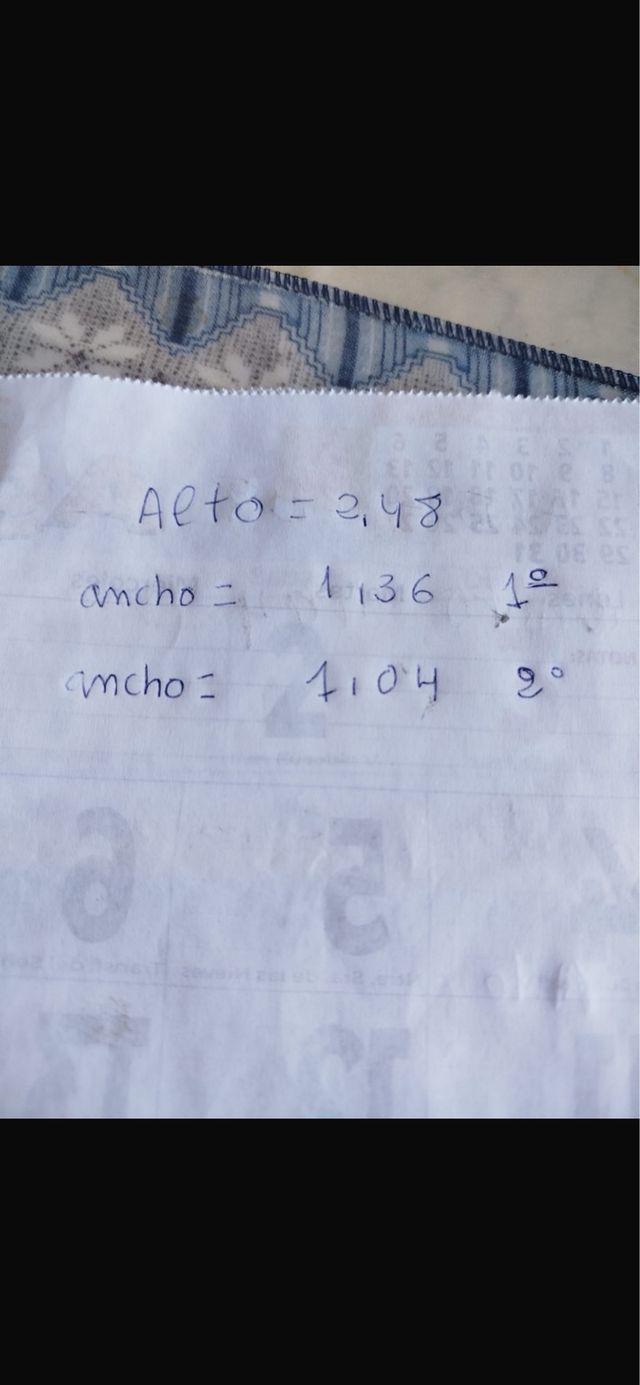 Alto = 2,48
ancho = 1,36 1º
ancho = 1,04 2º